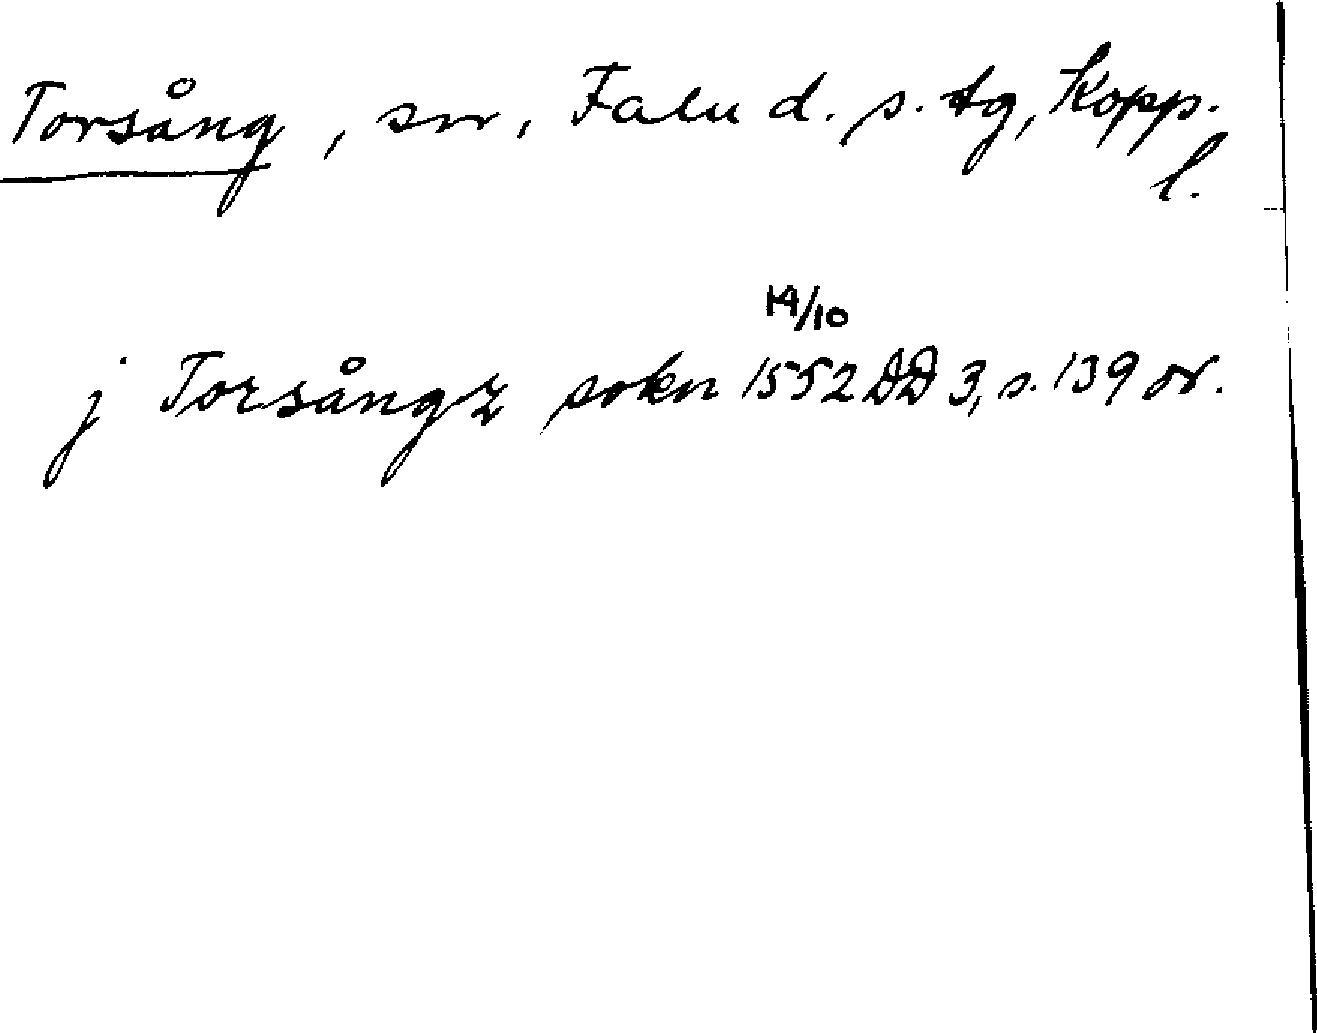 Torsång, sn, Falu d. s. tg, Kopp.
l.
14/10
j Torsångz sokn 1552 DD 3, s. 139 or.